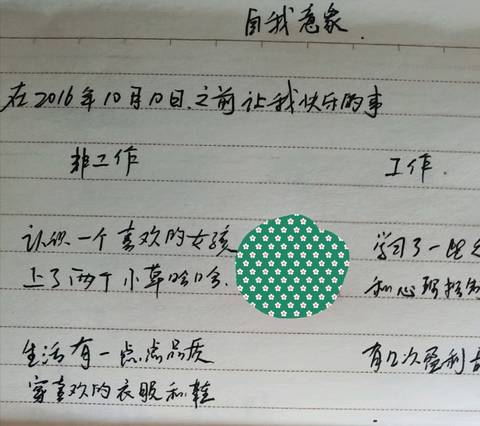 自我意象.
在2016年10月10日.之前让我快乐的事
非工作
工作.
认识一个喜欢的女孩
上了两个小草哈哈.
学习了一些
和心
生活有一点点品质
穿喜欢的衣服和鞋
有几次盈利